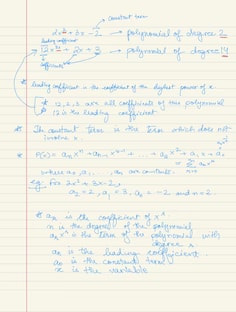 constant term
2x² + 3x - 2 → polynomial of degree 2
leading coefficient
12x¹⁴ + 2x + 3 → polynomial of degree 14
coefficients
* leading coefficient is the coefficient of the highest power of x.
* 12, 2, 3 are all coefficients of this polynomial
* 12 is the leading coefficient
* The constant term is the term which does not
involve x.
* P(x) = aₙxⁿ + aₙ₋₁xⁿ⁻¹ + ... + a₂x² + a₁x + a₀
where a₀, a₁, ... aₙ are constants.
e.g. For 2x² + 3x - 2,
a₂ = 2, a₁ = 3, a₀ = -2 and n = 2
* aₙ is the coefficient of xⁿ
n is the degree of the polynomial
is the term of the polynomial with
degree
aₙ is the leading coefficient
a₀ is the constant term
x is the variable